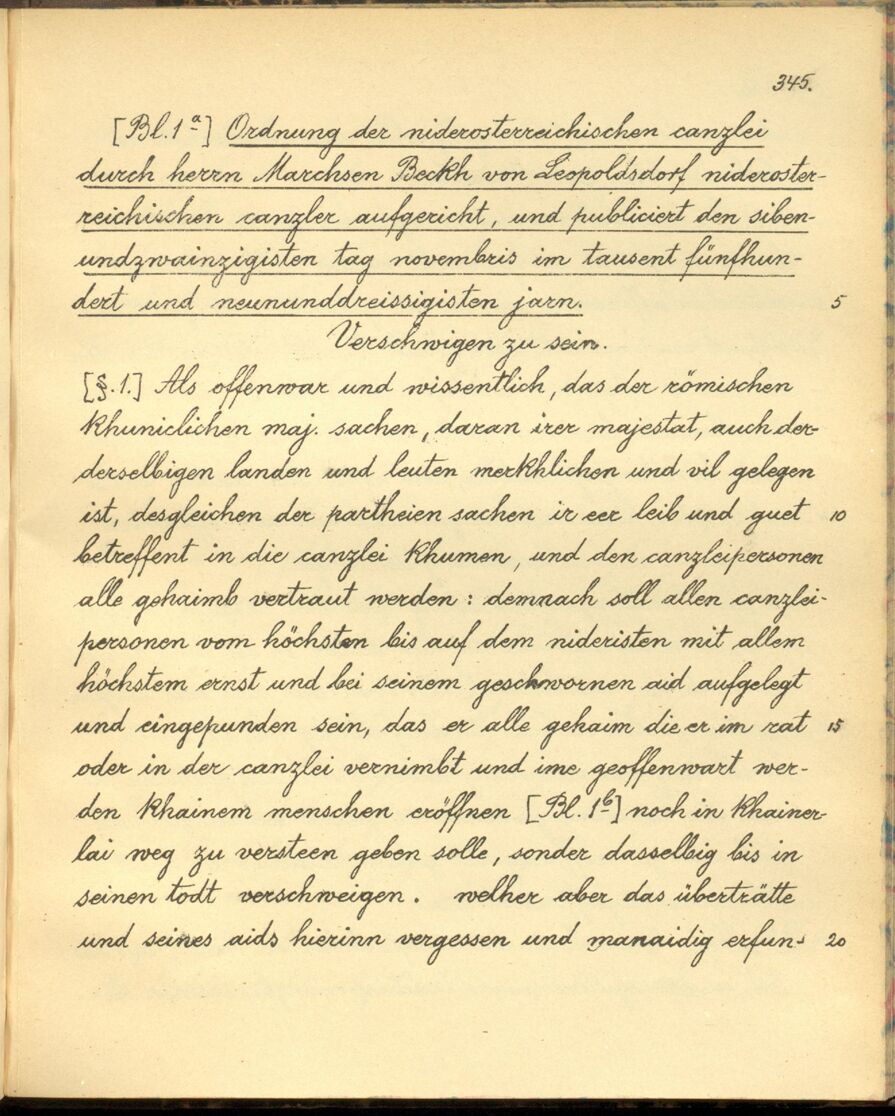 345.
[Bl. 1ª] Ordnung der niderosterreichischen canzlei
durch herrn Marchsen Beckh von Leopoldsdorf nideroster-
reichischen canzler aufgericht, und publiciert den siben-
undzwainzigisten tag novembris im tausent fünfhun-
dert und neununddreissigisten jarn. 5
Verschwigen zu sein.
[§. 1.] Als offenwar und wissentlich, das der römischen
khuniclichen maj. sachen, daran irer majestat, auch der-
derselbigen landen und leuten merkhlichen und vil gelegen
ist, desgleichen der partheien sachen ir eer leib und guet 10
betreffent in die canzlei khumen, und den canzleipersonen
alle gehaimb vertraut werden : demnach soll allen canzlei-
personen vom höchsten bis auf dem nideristen mit allem
höchstem ernst und bei seinem geschwornen aid aufgelegt
und eingepunden sein, das er alle gehaim die er im rat 15
oder in der canzlei vernimbt und ime geoffenwart wer-
den khainem menschen eröffnen [Bl. 1b] noch in khainer-
lai weg zu versteen geben solle, sonder dasselbig bis in
seinen todt verschweigen. welher aber das überträtte
und seines aids hierinn vergessen und manaidig erfun- 20